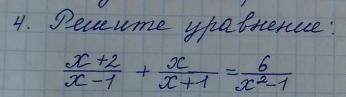 4. Решите уравнение:
(x+2)/(x-1) + x/(x+1) = 6/(x²-1)